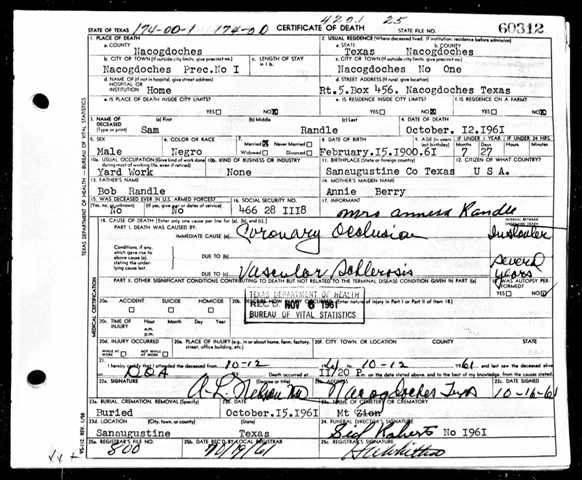 4201 25
STATE OF TEXAS 174-00-1 174-00 CERTIFICATE OF DEATH STATE FILE NO. 60312
1. PLACE OF DEATH
a. COUNTY
Nacogdoches
2. USUAL RESIDENCE (Where deceased lived. If institution: residence before admission)
a. STATE b. COUNTY
Texas Nacogdoches
b. CITY OR TOWN (If outside city limits, give precinct no.) c. LENGTH OF STAY in 1 b.
Nacogdoches Prec.No I
c. CITY OR TOWN (If outside city limits, give precinct no.)
Nacogdoches No One
d. NAME OF (If not in hospital, give street address) HOSPITAL OR INSTITUTION
Home
d. STREET ADDRESS (If rural, give location)
Rt.5.Box 456. Nacogdoches Texas
e. IS PLACE OF DEATH INSIDE CITY LIMITS?
YES NO X
e. IS RESIDENCE INSIDE CITY LIMITS? f. IS RESIDENCE ON A FARM?
YES NO X YES NO X
3. NAME OF DECEASED (Type or print) (a) First (b) Middle (c) Last
Sam Randle
4. DATE OF DEATH
October. I2.I96I
5. SEX
Male
6. COLOR OR RACE
Negro
7. Married X Never Married
Widowed Divorced
8. DATE OF BIRTH
February.I5.I900.
9. AGE (In years last birthday) IF UNDER 1 YEAR IF UNDER 24 HRS.
6I 7 27
10a. USUAL OCCUPATION (Give kind of work done during most of working life, even if retired)
Yard Work
10b. KIND OF BUSINESS OR INDUSTRY
None
11. BIRTHPLACE (State or foreign country)
Sanaugustine Co Texas
12. CITIZEN OF WHAT COUNTRY?
U S A.
13. FATHER'S NAME
Bob Randle
14. MOTHER'S MAIDEN NAME
Annie Berry
15. WAS DECEASED EVER IN U.S. ARMED FORCES?
No No
16. SOCIAL SECURITY NO.
466 28 III8
17. INFORMANT
Mrs Randle
18. CAUSE OF DEATH [Enter only one cause per line for (a), (b), and (c).]
PART I. DEATH WAS CAUSED BY:
IMMEDIATE CAUSE (a) Coronary Occlusion
INTERVAL BETWEEN ONSET AND DEATH
Conditions, if any, which gave rise to above cause (a), stating the underlying cause last.
DUE TO (b)
DUE TO (c) Vascular Sclerosis
Several years
PART II. OTHER SIGNIFICANT CONDITIONS CONTRIBUTING TO DEATH BUT NOT RELATED TO THE TERMINAL DISEASE CONDITION GIVEN IN PART I(a)
19. WAS AUTOPSY PERFORMED?
YES NO
20a. ACCIDENT SUICIDE HOMICIDE
20b. DESCRIBE HOW INJURY OCCURRED. (Enter nature of injury in Part I or Part II of item 18.)
TEXAS DEPARTMENT OF HEALTH
REC'D NOV 6 1961
BUREAU OF VITAL STATISTICS
20c. TIME OF INJURY Hour Month Day Year
a.m.
p.m.
20d. INJURY OCCURRED
WHILE AT WORK NOT WHILE AT WORK
20e. PLACE OF INJURY (e.g., in or about home, farm, factory, street, office building, etc.)
20f. CITY, TOWN, OR LOCATION COUNTY STATE
21. I hereby certify that I attended the deceased from 10-12 to 10-12 1961
DOA Death occurred at II/20 P. m. on the date stated above; and to the best of my knowledge, from the causes stated.
22a. SIGNATURE (Degree or title)
22b. ADDRESS
Nacogdoches Texas
22c. DATE SIGNED
10-16-61
23a. BURIAL, CREMATION, REMOVAL (Specify)
Buried
23b. DATE
October.I5.I96I
23c. NAME OF CEMETERY OR CREMATORY
Mt Zion
23d. LOCATION (City, town, or county) (State)
Sanaugustine Texas
24. FUNERAL DIRECTOR'S SIGNATURE
Sid Roberts No I96I
25a. REGISTRAR'S FILE NO.
800
25b. DATE REC'D BY LOCAL REGISTRAR
25c. REGISTRAR'S SIGNATURE
TEXAS DEPARTMENT OF HEALTH - BUREAU OF VITAL STATISTICS
MEDICAL CERTIFICATION